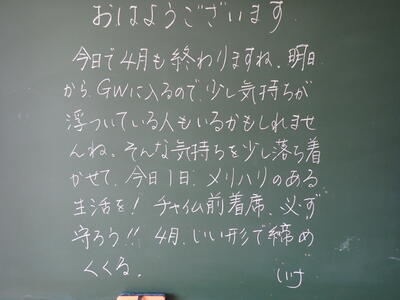 おはようございます
今日で4月も終わりますね。明日
から、GWに入るので、少し気持ちが
浮ついている人もいるかもしれませ
んね。そんな気持ちを少し落ち着
かせて、今日1日、メリハリのある
生活を！チャイム前着席、必ず
守ろう!!4月、いい形で締め
くくる。